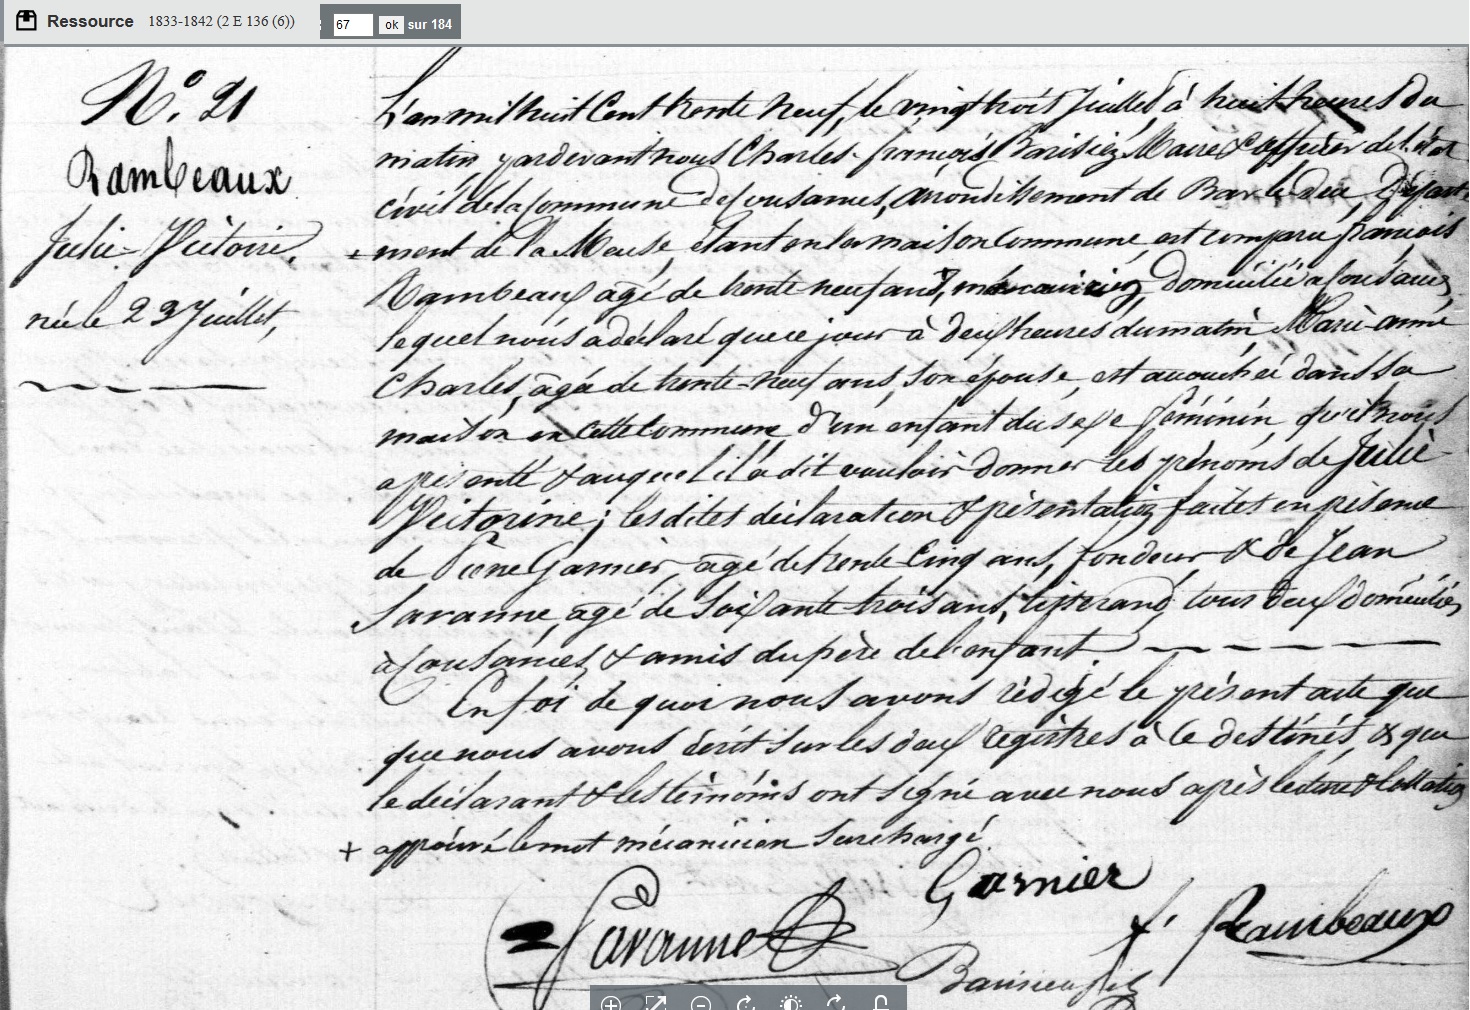 Ressource 1833-1842 (2 E 136 (6)) 67 ok sur 184
N.° 21
Rambeaux
Julie-Victoire,
née le 23 Juillet,
L'an mil huit Cent trente neuf, le vingt trois Juillet, à huit heures du
matin, pardevant nous Charles-françois Parisien Maire & officier de l'état
civil de la commune de Cousances, arrondissement de Bar-le-Duc, Départe-
ment de la Meuse, étant en la maison Commune, est comparu françois
Rambeaux agé de trente neuf ans, mécanicien, domicilié à Cousances,
lequel nous a déclaré que ce jour à deux heures du matin, Marie-anne
Charles, agée de trente-neuf ans, son épouse, est accouchée dans sa
maison en cette Commune d'un enfant du sexe féminin qu'il nous
a présenté & auquel il a dit vouloir donner les prénoms de Julie-
Victorine; les dites déclaration & présentation faites en présence
de Pierre Garnier, agé de trente Cinq ans, fondeur & de Jean
Lavanne, agé de soixante trois ans, tisserand, tous deux domiciliés
à Cousances, & amis du père de l'enfant
En foi de quoi nous avons rédigé le présent acte que
que nous avons écrit sur les deux registres à ce destinés, & que
le déclarant & les témoins ont signé avec nous après lecture & collation
+ approuvé le mot mécanicien surchargé
Garnier
Lavanne
f. Rambeaux